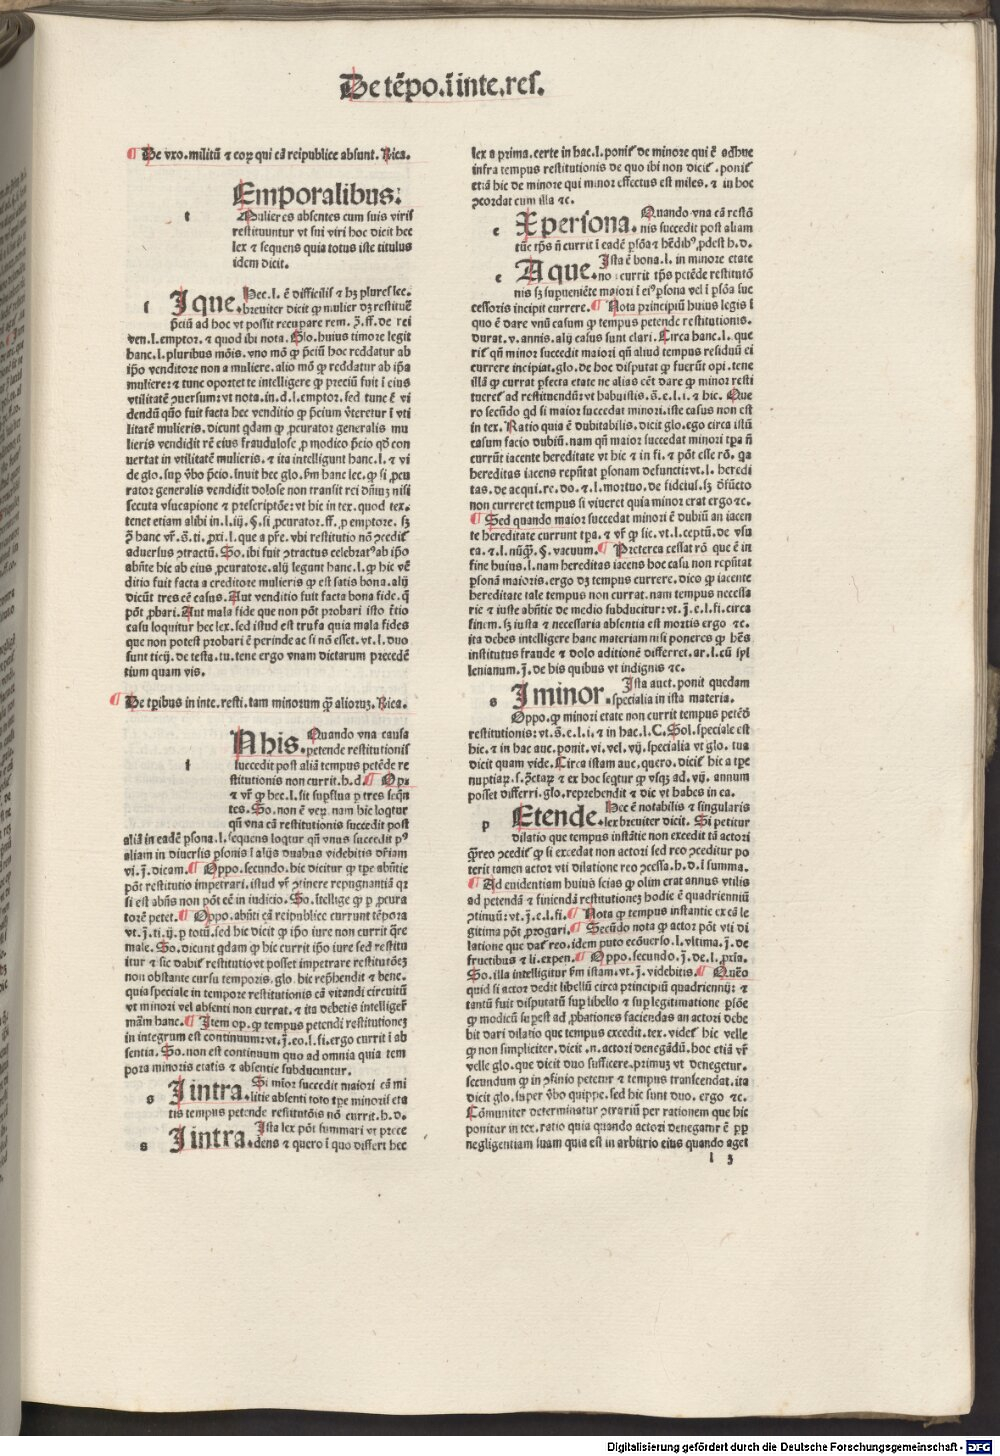 De tēpo.ī inte.res.
¶ De vxo.militū ⁊ eoꝝ qui cā reipublice absunt. Rica.
Emporalibus:
t
Mulieres absentes cum suis viris
restituuntur vt sui viri hoc dicit hec
lex ⁊ sequens quia totus iste titulus
idem dicit.
s
I que.
Hec.l. ē difficilis ⁊ hꝫ plures lec.
breuiter dicit ꝙ mulier dꝫ restituē
p̄ciū ad hoc vt possit recupare rem. ꝫ.ff.de rei
ven.l.emptor. ⁊ quod ibi nota. Glo.huius timore legit
hanc.l.pluribus mōis. vno mō ꝙ p̄ciū hoc reddatur ab
ip̄o venditore non a muliere. alio mō ꝙ reddatur ab ip̄a
muliere: ⁊ tunc oportet te intelligere ꝙ preciū fuit ī eius
vtilitatē ꝯuersum: vt nota.in.d.l.emptor. sed tunc ē vi
dendū qn̄o fuit facta hec venditio ꝙ p̄cium v̄teretur ī vti
litatē mulieris. dicunt qdam ꝙ ꝓcurator generalis mu
lieris vendidit rē eius fraudulose ꝓ modico p̄cio qd̄ con
uertat in vtilitatē mulieris. ⁊ ita intelligunt hanc.l. ⁊ vi
de glo.sup v̄bo p̄cio. innuit hec glo.f̄m hanc lec. ꝙ si ꝓcu
rator generalis vendidit dolose non transit rei dn̄iuꝫ nisi
secuta vsucapione ⁊ prescriptōe: vt hic in tex. quod tex.
tenet etiam alibi in.l.iij. §.si ꝓcurator.ff.ꝓ emptore. sꝫ
ꝫ̄ hanc vr̄.s̄.ti.ꝓxi.l.que a p̄re. vbi restitutio nō ꝓcedit
aduersus ꝯtractū. So.ibi fuit ꝯtractus celebratꝰ ab ip̄o
abn̄te hic ab eius ꝓcuratore. alij legunt hanc.l. ꝙ hic vē
ditio fuit facta a creditore mulieris ꝙ est satis bona. alij
dicūt tres eē casus. Aut venditio fuit facta bona fide. ꝙ
pōt ꝓbari. Aut mala fide que non pōt probari isto t̄tio
casu loquitur hec lex. sed istud est trufa quia mala fides
que non potest probari ē perinde ac si nō esset. vt.l.duo
sunt ticij. de testa.tu. tene ergo vnam dictarum precedē
tium quam vis.
¶ De tꝑibus in inte.resti.tam minorum qͣꝫ alioruꝫ. Rica.
Nbis.
i
Quando vna causa
petende restitutionis
succedit post aliā tempus petēde re
stitutionis non currit.h.d. ¶ Opꝫ
⁊ vr̄ ꝙ hec.l.sit supflua ꝑ tres seqn̄
tes. So. non ē veꝝ. nam hic loqtur
qn̄ vna cā restitutionis succedit post
aliā in eadē psona.l.sequens loqtur qn̄ vnus succedit pꝰ
aliam in diuersis ꝑsonis ī alijs duabus videbitis dr̄iam
vt.j̄.dicam. ¶ Oppo.secundo.hic dicitur ꝙ tꝑe abn̄tie
pōt restitutio impetrari. istud vr̄ ꝯtinere repugnantiā qꝛ
si est abn̄s non pōt eē in iudicio. So.itellige ꝙ ꝑ ꝓcura
torē petet. ¶ Oppo.abn̄ti cā reipublice currunt tēpora
vt.j̄.ti.ij.ꝑ totū. sed hic dicit ꝙ ip̄o iure non currit q̄re
male. So.dicunt qdam ꝙ hic currit ip̄o iure sed restitu
itur ⁊ sic dabit restitutio vt posset impetrare restitutōeꝫ
non obstante cursu temporis. glo.hic rep̄hendit ⁊ bene.
quia speciale in tempore restitutionis cā vitandi circuitū
vt minori vel absenti non currat. ⁊ ita debetis intelligere
mām hanc. ¶ Item op. ꝙ tempus petendi restitutioneꝫ
in integrum est continuum: vt.j̄.eo.l.fi. ergo currit ī ab
sentia. So.non est continuum quo ad omnia quia tem
pora minoris etatis ⁊ absentie subducuntur.
s
I intra.
Si mīor succedit maiori cā mi
litie absenti toto tꝑe minoris eta
tis tempus petende restitutōis nō currit.h.d.
s
I intra.
Ista lex pōt summari vt prece
dens ⁊ quero ī quo differt hec
lex a prima. certe in hac.l.ponit de minore qui ē adhuc
infra tempus restitutionis de quo ibi non dicit. ponit
etiā hic de minore qui minor effectus est miles. ⁊ in hoc
ꝯcordat cum illa ⁊c.
e
X persona.
Quando vna cā restō
nis succedit post aliam
tūc tꝑs n̄ currit ī eadē ꝑsōa ⁊ hēdibꝰ ꝓdest h.d.
e
A que.
Ista ē bona.l. in minore etate
no currit tꝑs petēde restitutō
nis sꝫ supueniēte maiori ī eiꝰ psona vel ī psōa suc
cessoris incipit currere. ¶ Nota principiū huius legis ī
quo ē dare vnū casum ꝙ tempus petende restitutionis.
durat.v.annis. alij casus sunt clari. Circa hanc.l.que
rit qn̄ minor succedit maiori qn̄ aliud tempus residuū ei
currere incipiat.glo.de hoc disputat ꝙ fuerūt opi.tene
illā ꝙ currat pfecta etate ne alias cēt dare ꝙ minor resti
tueret ad restituendū: vt habuistis.s̄.e.l.i. ⁊ hic. Que
ro secūdo qd si maior succedat minori. iste casus non est
in tex. Ratio quia ē dubitabilis. dicit glo.ego circa istū
casum facio dubiū. nam qn̄ maior succedat minori tꝑa n̄
currūt iacente hereditate vt hic ⁊ in fi. ⁊ pōt esse rō. qa
hereditas iacens repn̄tat psonam defuncti: vt.l.heredi
tas.de acqui.re.do. ⁊.l.mortuo.de fideius. sꝫ dīfucto
non curreret tempus si viueret quia minor erat ergo ⁊c.
¶ Sed quando maior succedat minori ē dubiū an iacen
te hereditate currunt tꝑa. ⁊ vr̄ ꝙ sic.vt.l.ceptū.de vsu
ca. ⁊.l.nūqͣꝫ.§.vacuum. ¶ Preterea cessat rō que ē in
fine huius.l.nam hereditas iacens hoc casu non repn̄tat
psonā maioris. ergo dꝫ tempus currere. dico ꝙ iacente
hereditate tale tempus non currat. nam tempus necessa
rie ⁊ iuste abn̄tie de medio subducitur: vt.j̄.e.l.fi.circa
finem. sꝫ iusta ⁊ necessaria absentia est mortis ergo ⁊c.
ita debes intelligere hanc materiam nisi poneres ꝙ hēs
institutus fraude ⁊ dolo aditionē differret. ar.l.cū syl
lenianum.j̄.de his quibus vt indignis ⁊c.
s
I minor.
Ista auct.ponit quedam
specialia in ista materia.
Oppo. ꝙ minori etate non currit tempus petēd
restitutionis: vt.s̄.e.l.i. ⁊ in hac.l.C. Sol.speciale est
hic. ⁊ in hac auc.ponit.vi.vel.vij.specialia vt glo. tua
dicit quam vide. Circa istam auc.quero.dicit hic a tꝑe
nuptiaꝝ.s.ꝯ̄ctaꝝ ⁊ ex hoc seqtur ꝙ vsqꝫ ad.vij.annum
posset differri.glo.reprehendit ⁊ dic vt habes in ea.
p
Etende.
Hec ē notabilis ⁊ singularis
lex breuiter dicit. Si petitur
dilatio que tempus instātie non excedit tā actori
qͣꝫ reo ꝯcedit ꝙ si excedat non actori sed reo ꝯceditur po
terit tamen actor vti dilatione reo ꝯcessa.h.d.l summa.
¶ Ad euidentiam huius scias ꝙ olim erat annus vtilis
ad petendā ⁊ finiendā restitutioneꝫ hodie ē quadrienniū
ꝯtinuū: vt.j̄.e.l.fi. ¶ Nota ꝙ tempus instantie ex cā le
gitima pōt ꝓrogari. ¶ Secūdo nota ꝙ actor pōt vti di
latione que dat reo. idem puto ecōuerso.l.vltima.j̄.de
fructibus ⁊ li.expen. ¶ Oppo.secundo.j̄.de.l.pxīa.
So.illa intelligitur f̄m istam.vt.j̄.videbitis. ¶ Quēo
quid si actor dedit libellū circa principiū quadriennij: ⁊
tantū fuit disputatū sup libello ⁊ sup legitimatione psōe
ꝙ modicū supest ad ꝓbationes faciendas an actori debe
bit dari dilatio que tempus excedit. tex. videt hic velle
ꝙ non simpliciter. dicit.n.actori denegādū. hoc etiā vr̄
velle glo.que dicit duo sufficere. primuꝫ vt denegetur.
secundum ꝙ in ꝯfinio petetur ⁊ tempus transcendat. ita
dicit glo.super v̄bo quippe. sed hic sunt duo. ergo ⁊c.
Cōmuniter determinatur ꝯtrariū per rationem que hic
ponitur in tex. ratio quia quando actori denegatur ē ꝓꝑ
negligentiam suam quia est in arbitrio eius quando aget
l 3
Digitalisierung gefördert durch die Deutsche Forschungsgemeinschaft - DFG